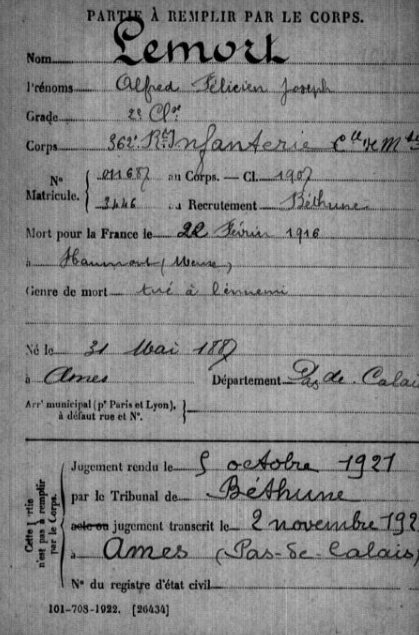 PARTIE À REMPLIR PAR LE CORPS.
Nom Lemort
Prénoms Alfred Félicien Joseph
Grade 2e Clse
Corps 362e Rt Infanterie Cie H M
Nº Matricule. { 011687 au Corps. — Cl. 1907
3446 au Recrutement Béthune
Mort pour la France le 22 Février 1916
à Haumont (Meuse)
Genre de mort tué à l'ennemi
Né le 31 Mai 1887
à Ames Département Pas de Calais
Arrt municipal (pr Paris et Lyon), à défaut rue et Nº. }
Cette partie n'est pas à remplir par le Corps.
Jugement rendu le 5 octobre 1921
par le Tribunal de Béthune
acte ou jugement transcrit le 2 novembre 192
à Ames (Pas-de-Calais)
Nº du registre d'état civil
101-708-1922. [26434]